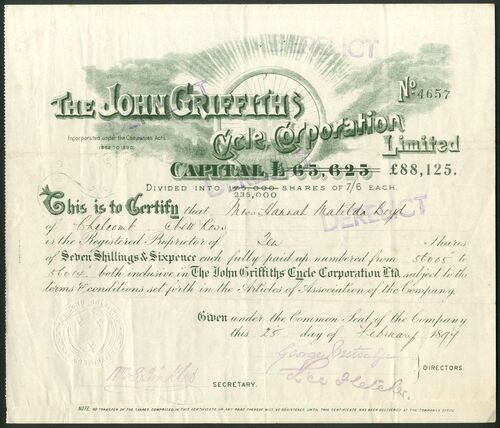 DERELICT
DERELICT
No. 4657
THE JOHN GRIFFITHS
Cycle, Corporation
Incorporated under the Companies Acts
1862 TO 1890.
Limited
CAPITAL, £ 65,625 £88,125.
DERELICT
DIVIDED INTO 175,000 SHARES OF 7/6 EACH.
235,000
DERELICT
This is to Certify that Miss Hannah Matilda Boyd
of
is the Registered Proprietor of Ten Shares
of Seven Shillings & Sixpence each fully paid up numbered from 56005 to
56014 both inclusive in The John Griffiths Cycle Corporation Ltd. subject to the
terms & conditions set forth in the Articles of Association of the Company.
Given under the Common Seal of the Company
this 25 day of February 1897
George
Fletcher.
DIRECTORS
SECRETARY.
NOTE. NO TRANSFER OF THE SHARES COMPRISED IN THIS CERTIFICATE, OR ANY PART THEREOF WILL BE REGISTERED UNTIL THIS CERTIFICATE HAS BEEN DELIVERED AT THE COMPANYS OFFICE